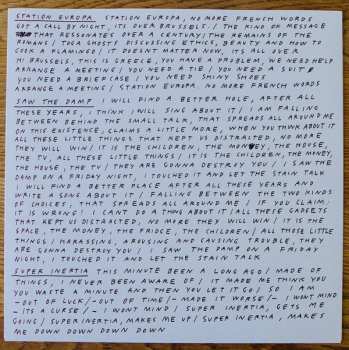 STATION EUROPA STATION EUROPA, NO MORE FRENCH WORDS
GOT A CALL BY NIGHT, ITS OVER BRUSSELS / THE KIND OF MESSAGE
THAT RESSONATES OVER A CENTURY; THE REMAINS OF THE
ROMANS / TOGA GHOSTS DISCUSSING ETHICS, BEAUTY AND HOW TO
COOK A FLAMINGO / IT DOESNT MATTER NOW, ITS ALL OVER
HI BRUSSELS, THIS IS GREECE, YOU HAVE A PROBLEM, WE NEED HELP
ARRANGE A MEETING / YOU NEED A TIE / YOU NEED A SUIT &
YOU NEED A BRIEFCASE / YOU NEED SHINY SHOES
ARRANGE A MEETING / STATION EUROPA, NO MORE FRENCH WORDS
SAW THE DAMP I WILL FIND A BETTER HOLE, AFTER ALL
THESE YEARS, I THINK I WILL SING ABOUT IT / I AM FALLING
BETWEEN BEHIND THE SMALL TALK, THAT SPREADS ALL AROUND ME
ON THIS EXISTENCE, CLAIMS A LITTLE MORE, WHEN YOU THINK ABOUT IT
ALL THESE LITTLE THINGS THAT KEPT US DISTRACTED, NO MORE
THEY WILL WIN / IT IS THE CHILDREN, THE MONEY, THE HOUSE,
THE TV, ALL THESE LITTLE THINGS / IT IS THE CHILDREN, THE MONEY,
THE HOUSE, THE TV / THEY ARE GONNA DESTROY YOU / I SAW THE
DAMP ON A FRIDAY NIGHT, I TOUCHED IT AND LET THE STAIN TALK
I WILL FIND A BETTER PLACE AFTER ALL THESE YEARS AND
WRITE A SONG ABOUT IT / FALLING BETWEEN THE TWO KINDS
OF CHOICES, THAT SPREADS ALL AROUND ME / IF YOU CLAIM;
IT IS WRONG! I CANT DO A THING ABOUT IT / ALL THESE GADGETS
THAT KEPT US DISTRACTED, NO MORE THEY WILL WIN / IT IS THE
SPACE, THE MONEY, THE FRIDGE, THE CHILDREN / ALL THOSE LITTLE
THINGS / HARASSING, AROUSING AND CAUSING TROUBLE, THEY
ARE GONNA DESTROY YOU / I SAW THE DAMP ON A FRIDAY
NIGHT, I TOUCHED IT AND LET THE STAIN TALK
SUPER INERTIA THIS MINUTE BEEN A LONG AGO / MADE OF
THINGS, I NEVER BEEN AWARE OF / IT MADE ME THINK YOU
YOU WASTE A MINUTE AND THEN YOU LET IT GO / SO I AM
-OUT OF LUCK / -OUT OF TIME / -MADE IT WORSE / - I WONT MIND
-ITS A CURSE / - I WONT MIND / SUPER INERTIA, GETS ME
GOING / SUPER INERTIA, MAKES ME UP / SUPER INERTIA, MAKES
ME DOWN DOWN DOWN DOWN